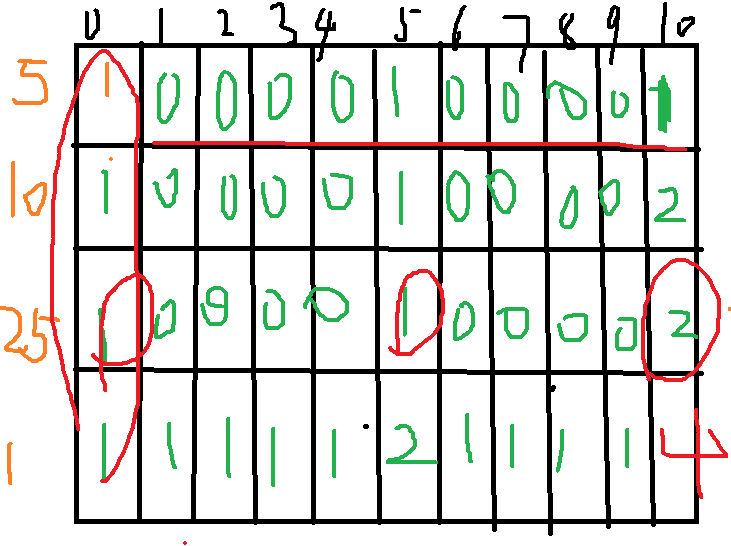 0 1 2 3 4 5 6 7 8 9 10
5 1 0 0 0 0 1 0 0 0 0 1
10 1 0 0 0 0 1 0 0 0 0 2
25 1 0 0 0 0 1 0 0 0 0 2
1 1 1 1 1 1 2 1 1 1 1 4